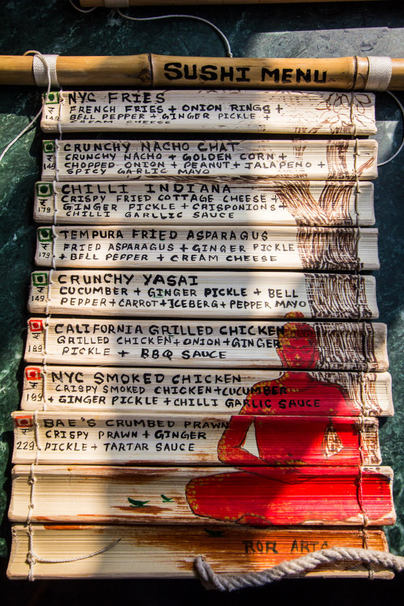 SUSHI MENU
NYC FRIES
FRENCH FRIES + ONION RINGS +
BELL PEPPER + GINGER PICKLE +
CREAM CHEESE
CRUNCHY NACHO CHAT
CRUNCHY NACHO + GOLDEN CORN +
CHOPPED ONION + PEANUT + JALAPENO +
SPICY GARLIC MAYO
149
CHILLI INDIANA
CRISPY FRIED COTTAGE CHEESE +
GINGER PICKLE + CRISPONIONS +
CHILLI GARLLIC SAUCE
179
TEMPURA FRIED ASPARAGUS
FRIED ASPARAGUS + GINGER PICKLE
+ BELL PEPPER + CREAM CHEESE
179
CRUNCHY YASAI
CUCUMBER + GINGER PICKLE + BELL
PEPPER + CARROT + ICEBERG + PEPPER MAYO
149
CALIFORNIA GRILLED CHICKEN
GRILLED CHICKEN + ONION + GINGER
PICKLE + BBQ SAUCE
189
NYC SMOKED CHICKEN
CRISPY SMOKED CHICKEN + CUCUMBER
+ GINGER PICKLE + CHILLI GARLIC SAUCE
199
BAE'S CRUMBED PRAWN
CRISPY PRAWN + GINGER
PICKLE + TARTAR SAUCE
229